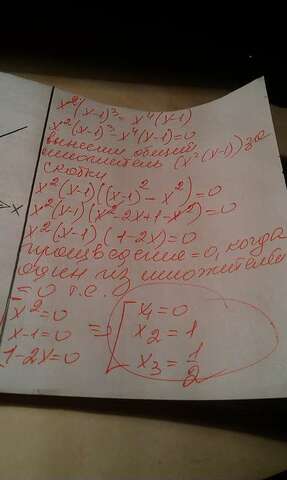 x²(x-1)³ = x⁴(x-1)
x²(x-1)³-x⁴(x-1)=0
вынесли общий
множитель (x²(x-1)) за
скобки
x²(x-1)((x-1)²-x²)=0
x²(x-1)(x²-2x+1-x²)=0
x²(x-1)(1-2x)=0
произведение=0, когда
один из множителей
=0 т.е.
x²=0
x-1=0
1-2x=0
=> x₁=0
x₂=1
x₃=1/2
x